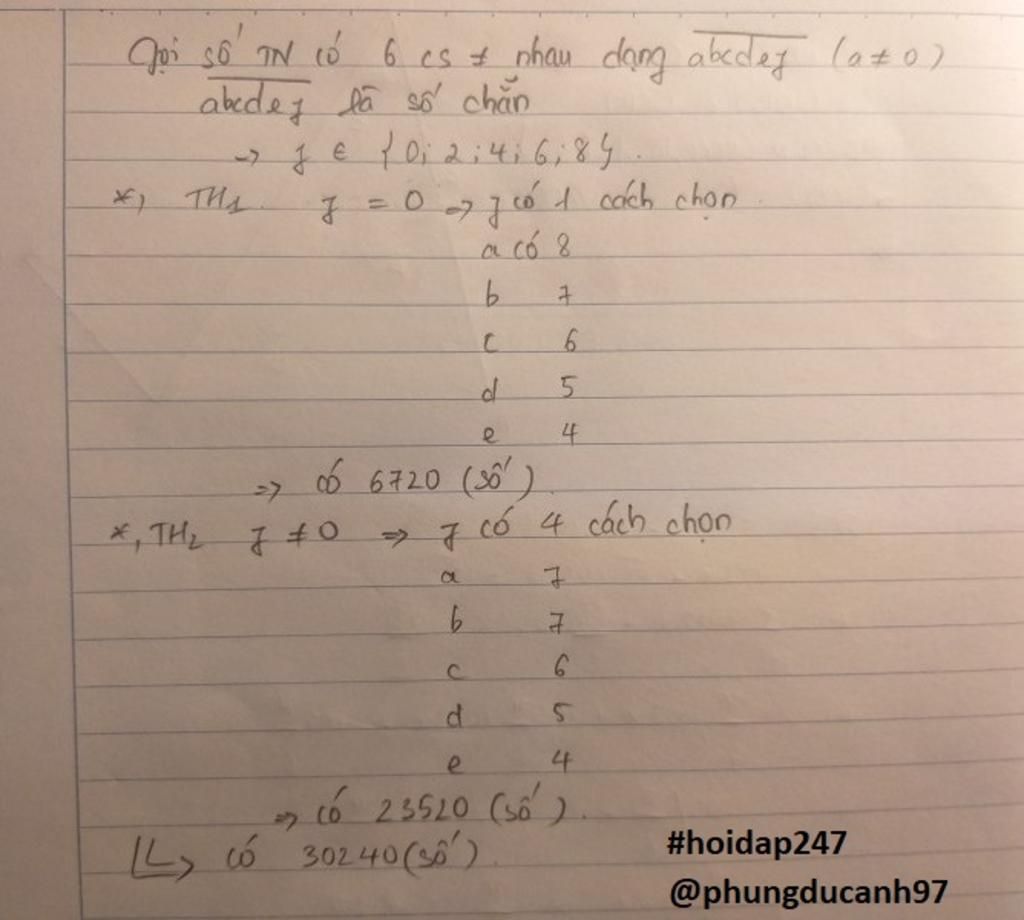 Gọi số TN có 6 cs ≠ nhau dạng abcdef (a ≠ 0)
abcdef là số chẵn
→ f ∈ {0; 2; 4; 6; 8}.
*, TH1. f = 0 => f có 1 cách chọn.
a có 8
b 7
c 6
d 5
e 4
=> có 6720 (số)
*, TH2 f ≠ 0 => f có 4 cách chọn
a 7
b 7
c 6
d 5
e 4
=> có 23520 (số).
KL → có 30240 (số)
#hoidap247
@phungducanh97